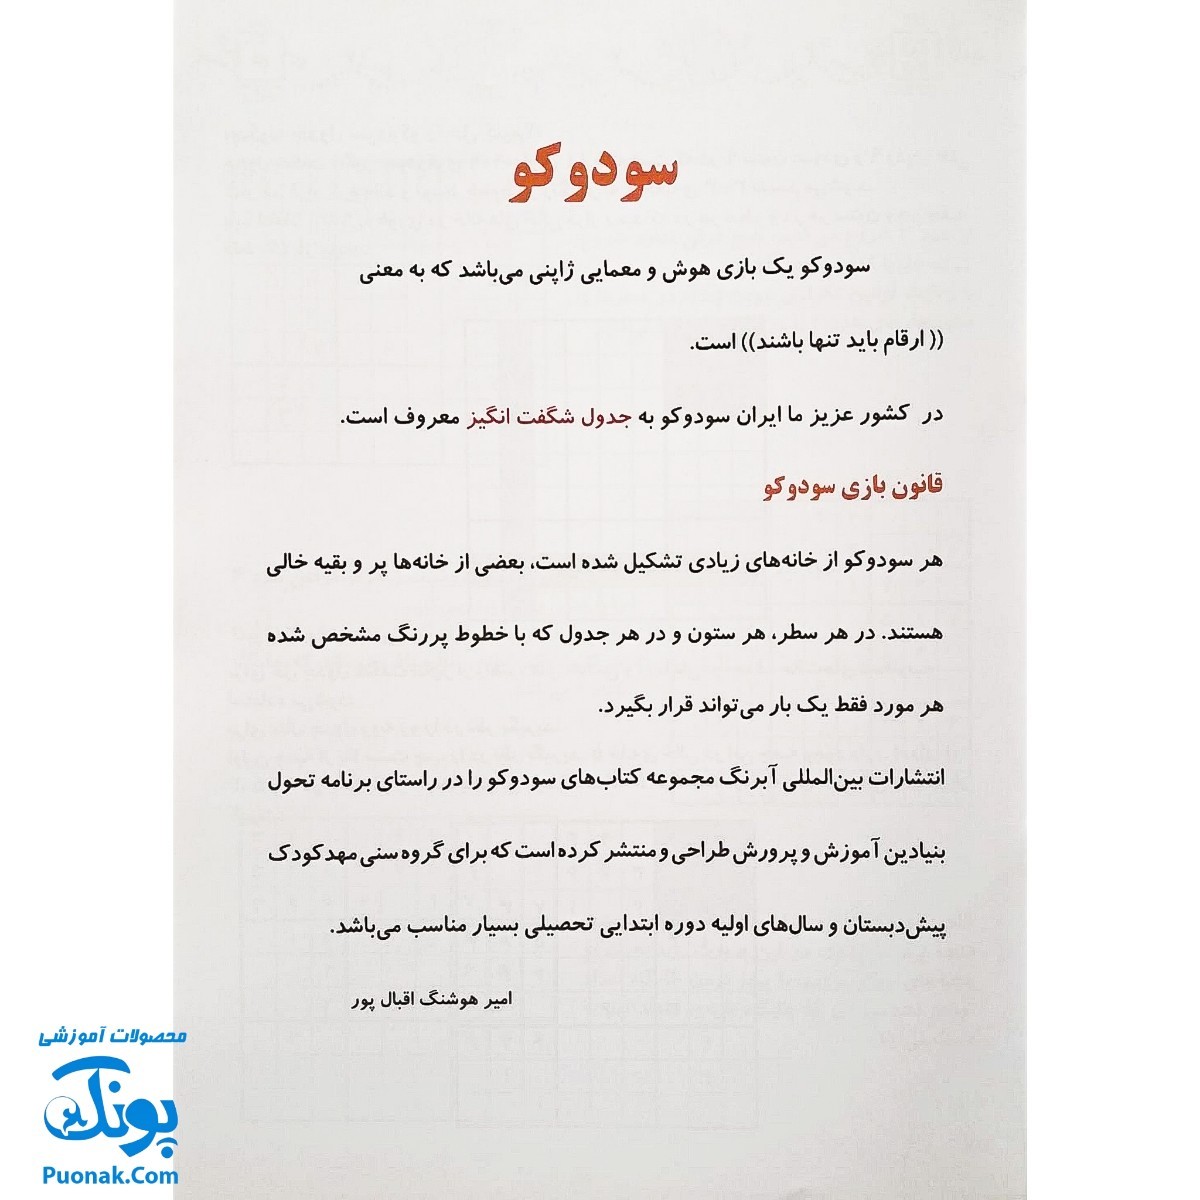 سودوکو
سودوکو یک بازی هوش و معمایی ژاپنی می‌باشد که به معنی
(( ارقام باید تنها باشند)) است.
در کشور عزیز ما ایران سودوکو به جدول شگفت انگیز معروف است.
قانون بازی سودوکو
هر سودوکو از خانه‌های زیادی تشکیل شده است، بعضی از خانه‌ها پر و بقیه خالی
هستند. در هر سطر، هر ستون و در هر جدول که با خطوط پررنگ مشخص شده
هر مورد فقط یک بار می‌تواند قرار بگیرد.
انتشارات بین‌المللی آبرنگ مجموعه کتاب‌های سودوکو را در راستای برنامه تحول
بنیادین آموزش و پرورش طراحی و منتشر کرده است که برای گروه سنی مهدکودک
پیش‌دبستان و سال‌های اولیه دوره ابتدایی تحصیلی بسیار مناسب می‌باشد.
امیر هوشنگ اقبال پور
محصولات آموزشی
پونک
Puonak.Com